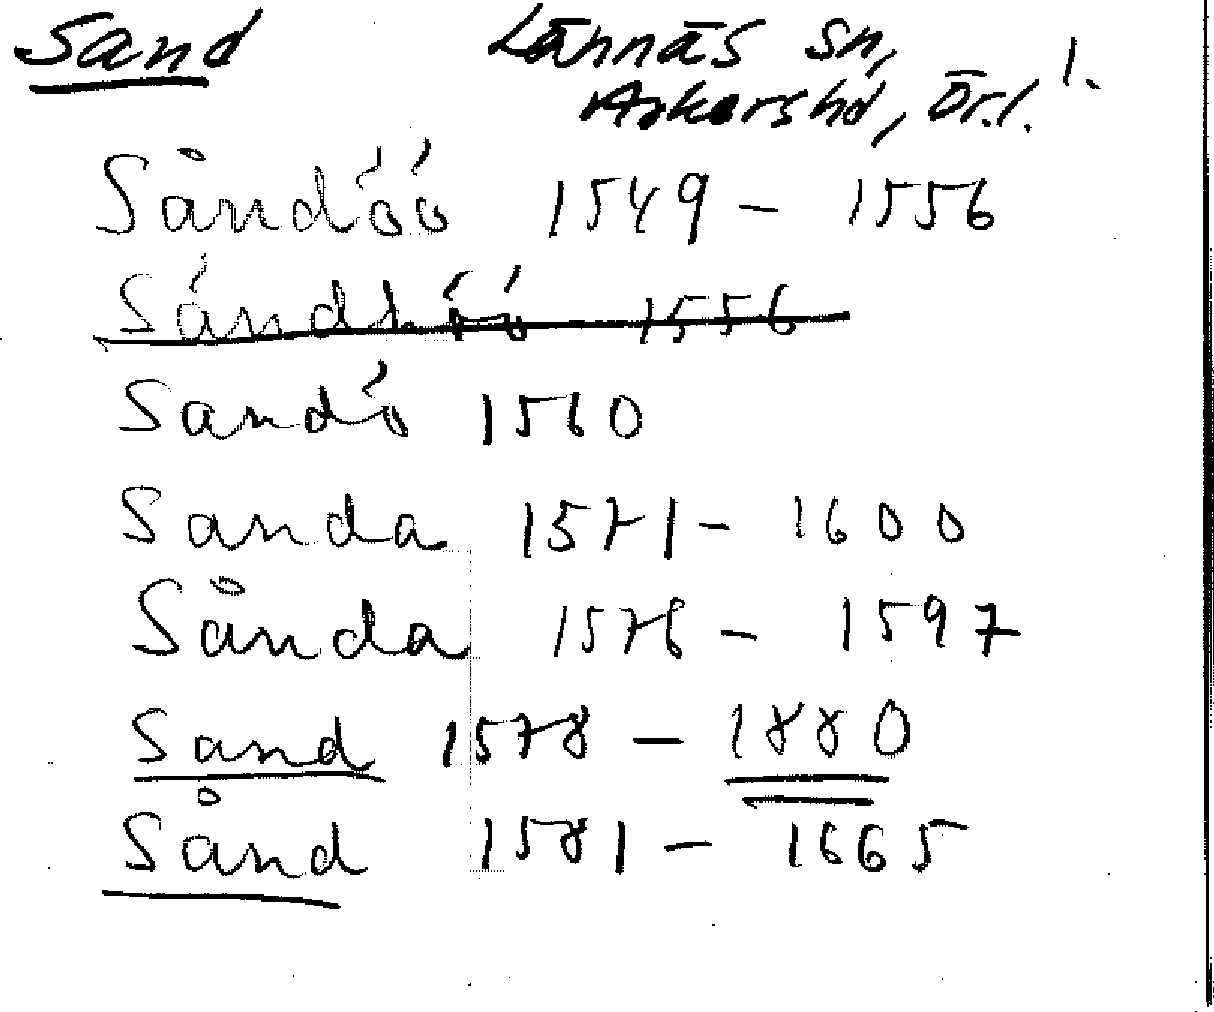 Sand Lännäs sn, 1.
Askers hd, Ör.l.
Såndöö 1549 – 1556
Sandö 1560
Sanda 1571 – 1600
Sånda 1576 – 1597
Sand 1578 – 1880
Sånd 1581 – 1665